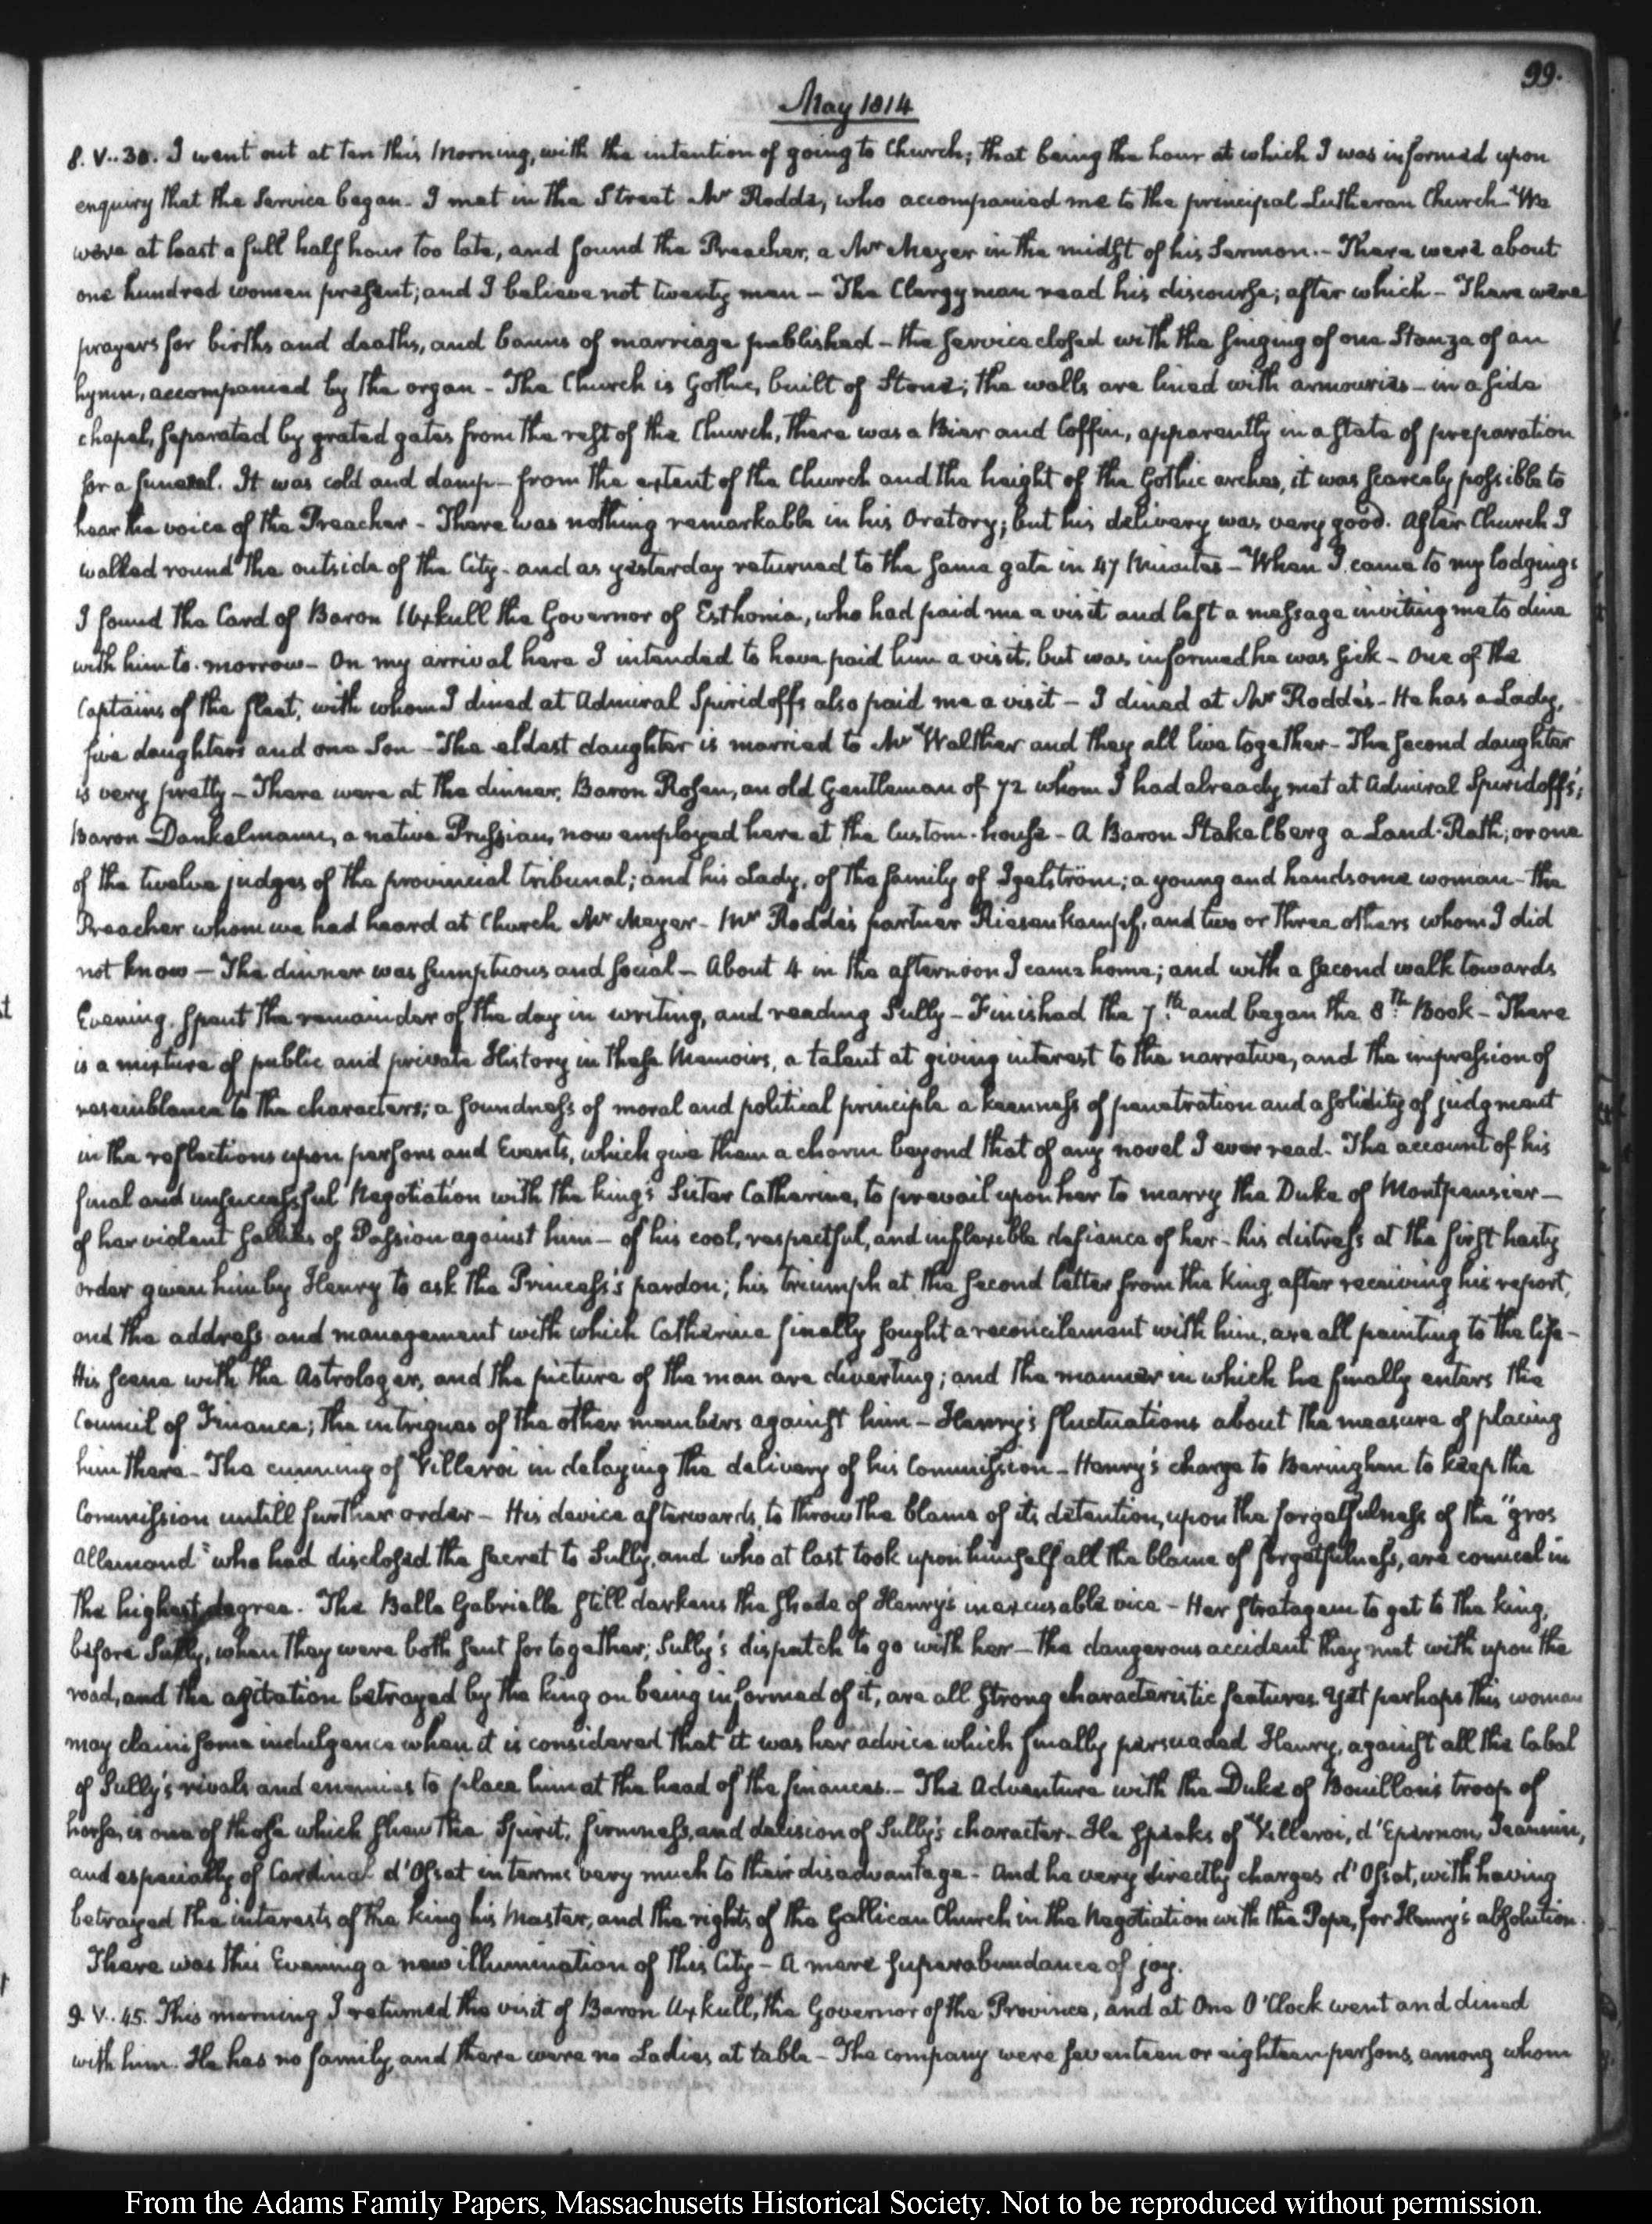 99.
May 1814
8. V..30. I went out at ten this Morning, with the intention of going to Church; that being the hour at which I was informed upon
enquiry that the service began. I met in the Street Mr Rodde, who accompanied me to the principal Lutheran Church. We
were at least a full half hour too late, and found the Preacher, a Mr Mayer in the midst of his Sermon.- There were about
one hundred women present; and I believe not twenty men - The Clergyman read his discourse; after which - There were
prayers for births and deaths, and banns of marriage published - the service closed with the singing of one Stanza of an
hymn, accompanied by the organ - The Church is Gothic, built of Stone; the walls are lined with armouries - in a side
chapel, separated by grated gates from the rest of the Church, there was a Bier and Coffin, apparently in a state of preparation
for a funeral. It was cold and damp - from the extent of the Church and the height of the Gothic arches, it was scarcely possible to
hear the voice of the Preacher - There was nothing remarkable in his Oratory; but his delivery was very good. After Church I
walked round the outside of the City - and as yesterday returned to the same gate in 47 Minutes - When I came to my lodgings
I found the Card of Baron Uxkull the Governor of Esthonia, who had paid me a visit and left a message inviting me to dine
with him to-morrow - On my arrival here I intended to have paid him a visit, but was informed he was sick - One of the
Captains of the fleet, with whom I dined at Admiral Spiridoff's also paid me a visit - I dined at Mr Rodde's - He has a Lady,
five daughters and one Son - The eldest daughter is married to Mr Walther and they all live together - The second daughter
is very pretty - There were at the dinner, Baron Rosen, an old Gentleman of 72 whom I had already met at Admiral Spiridoff's;
Baron Dankelmann, a native Prussian, now employed here at the Custom-house - A Baron Stakelberg a Land-Rath; or one
of the twelve judges of the provincial tribunal; and his Lady, of the family of Igelström; a young and handsome woman - the
Preacher whom we had heard at Church Mr Mayer - Mr Rodde's partner Riesenkampf, and two or three others whom I did
not know - The dinner was sumptuous and social - About 4 in the afternoon I came home; and with a second walk towards
Evening, spent the remainder of the day in writing, and reading Sully - Finished the 7th and began the 8th Book - There
is a mixture of public and private History in these Memoirs, a talent at giving interest to the narrative, and the impression of
resemblance to the characters; a soundness of moral and political principle a keenness of penetration and a solidity of judgment
in the reflections upon persons and Events, which give them a charm beyond that of any novel I ever read. The account of his
final and unsuccessful Negotiation with the king's Sister Catherine, to prevail upon her to marry the Duke of Montpensier -
of her violent sallies of Passion against him - of his cool, respectful, and inflexible defiance of her - his distress at the first hasty
order given him by Henry to ask the Princess's pardon; his triumph at the second letter from the King, after receiving his report,
and the address and management with which Catherine finally sought a reconcilement with him, are all painting to the life -
His scene with the Astrologer, and the picture of the man are diverting; and the manner in which he finally enters the
Council of Finance; the intrigues of the other members against him - Henry's fluctuations about the measure of placing
him there - The cunning of Villeroi in delaying the delivery of his Commission - Henry's charge to Beringhen to keep the
Commission untill further order - His device afterwards, to throw the blame of its detention, upon the forgetfulness of the "gros
Allemand" who had disclosed the secret to Sully, and who at last took upon himself all the blame of forgetfulness, are comical in
the highest degree. The Belle Gabrielle still darkens the shade of Henry's inexcusable vice - Her stratagem to get to the king,
before Sully, when they were both sent for together; Sully's dispatch to go with her - the dangerous accident they met with upon the
road, and the agitation betrayed by the king on being informed of it, are all strong characteristic features. Yet perhaps this woman
may claim some indulgence when it is considered that it was her advice which finally persuaded Henry, against all the Cabal
of Sully's rivals and enemies to place him at the head of the finances.- The Adventure with the Duke of Bouillon's troop of
horse, is one of those which shew the Spirit, firmness, and decision of Sully's character. He speaks of Villeroi, d'Epernon, Jeannin,
and especially of Cardinal d'Ossat in terms very much to their disadvantage - And he very directly charges d'Ossat, with having
betrayed the interests of the king his Master, and the rights of the Gallican Church in the Negotiation with the Pope, for Henry's absolution.
There was this Evening a new illumination of this City - A mere superabundance of joy.
9. V..45. This morning I returned the visit of Baron Uxkull, the Governor of the Province, and at One O'Clock went and dined
with him. He has no family, and there were no Ladies at table - The company were seventeen or eighteen persons, among whom
From the Adams Family Papers, Massachusetts Historical Society. Not to be reproduced without permission.